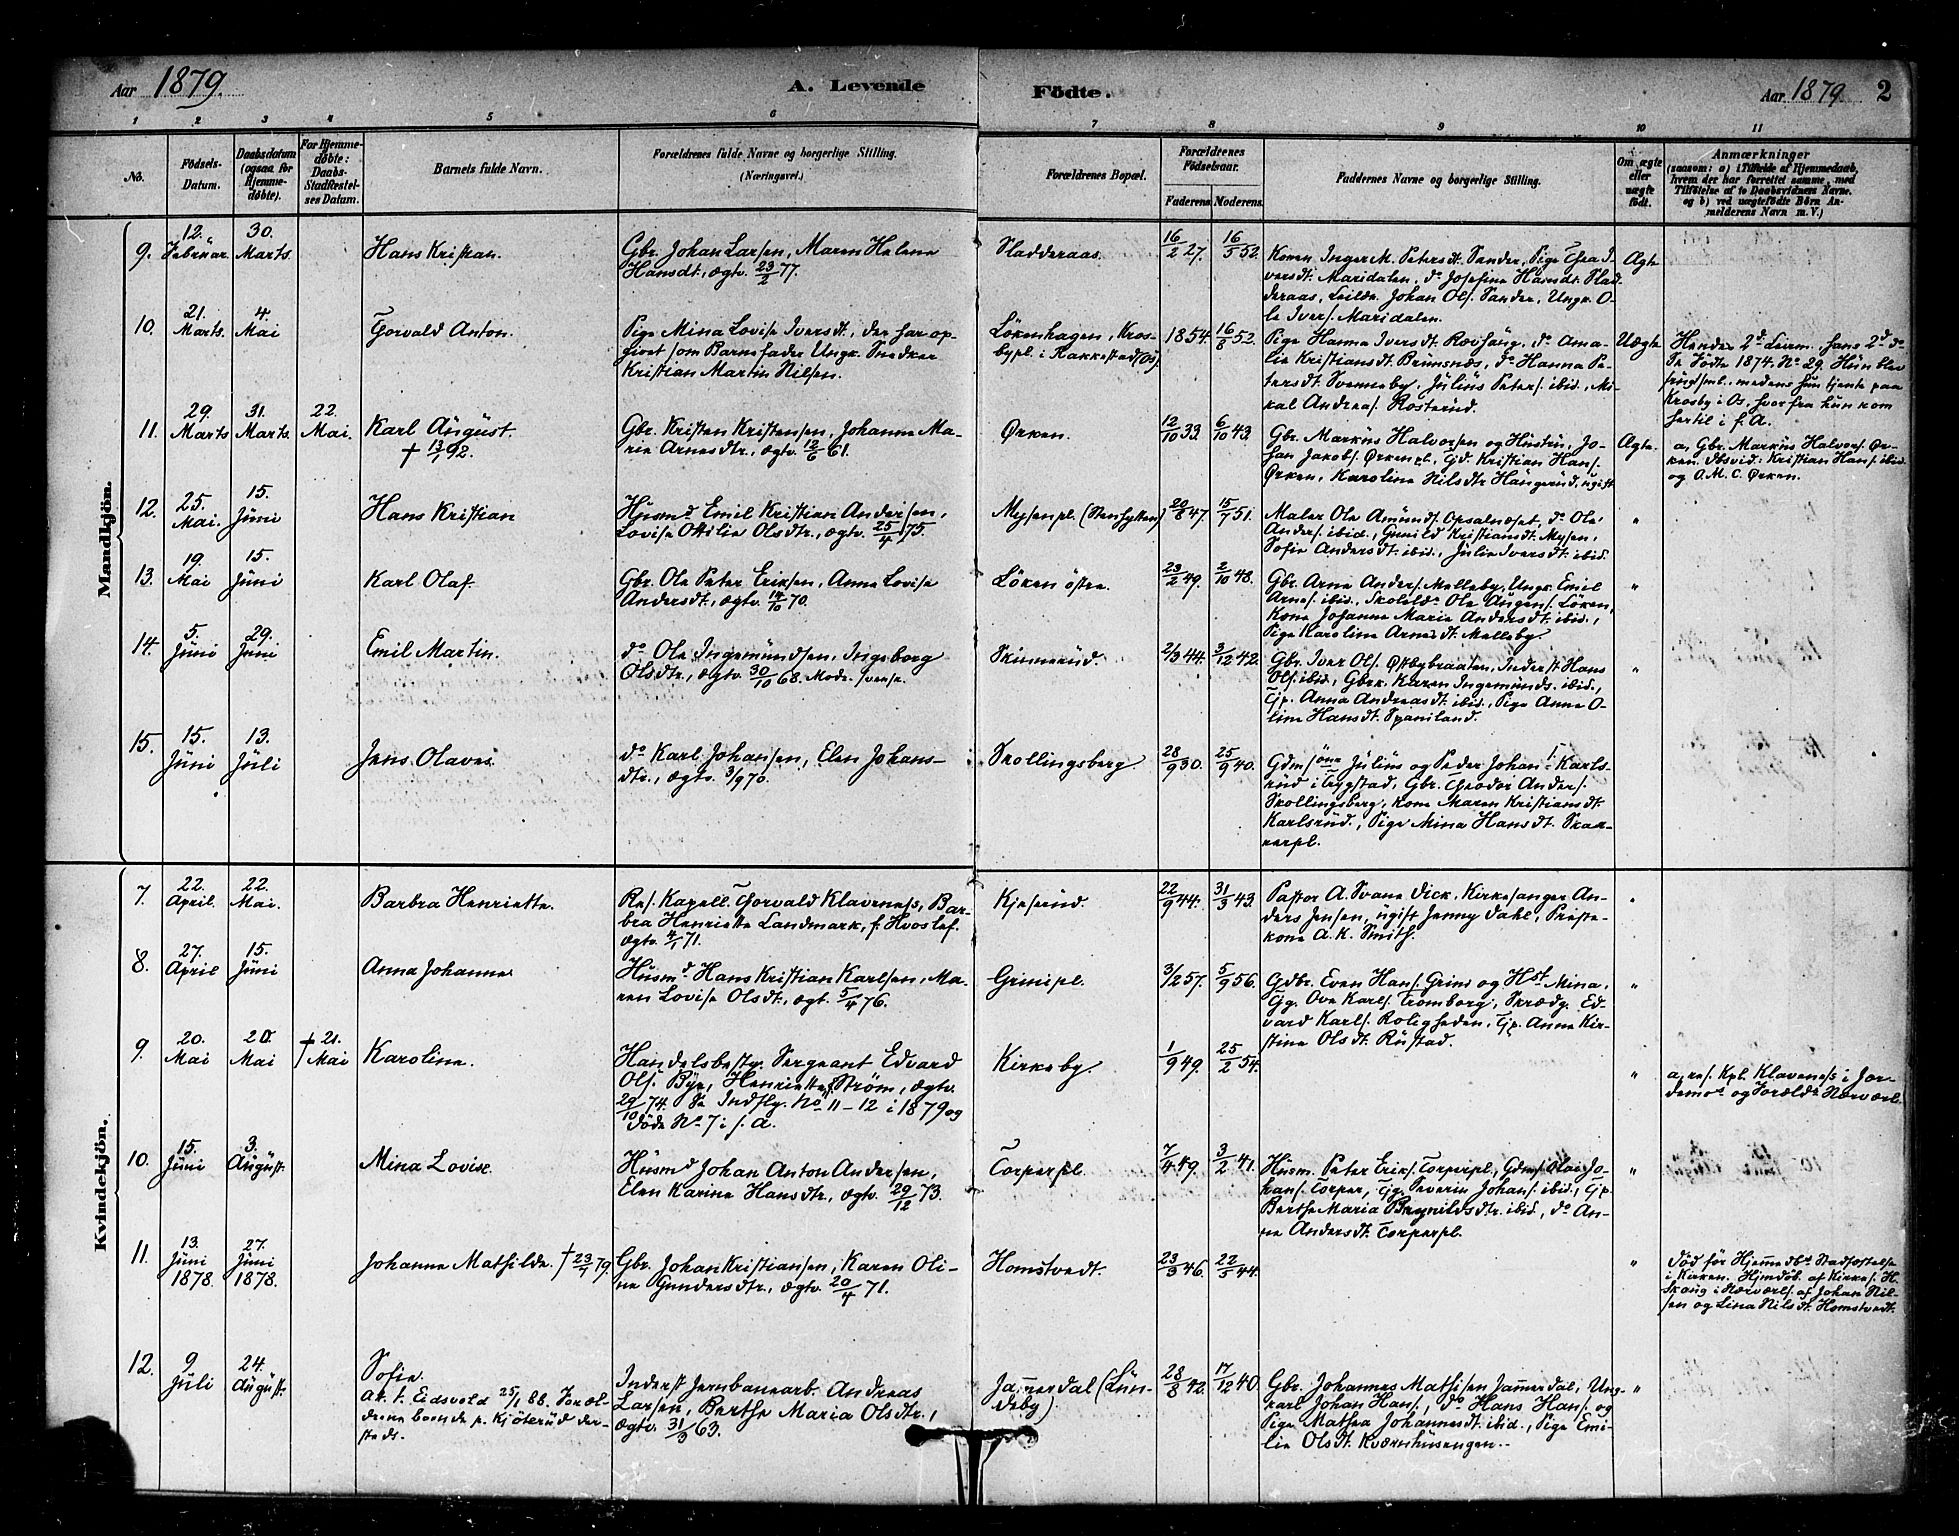 Aar 1879. A. Levende Födte. Aar 1879. 2
1 2 3 4 5 6 7 8 9 10 11
No.
Födsels-
Datum.
Daabsdatum
(ogsaa for
Hjemme-
döbte).
For Hjemme-
döbte:
Daabs-
Stadfæstel-
ses Datum.
Barnets fulde Navn.
Forældrenes fulde Navne og borgerlige Stilling.
(Næringsvei.)
Forældrenes Bopæl.
Forældrenes
Födselsaar.
Faderens. Moderens.
Faddernes Navne og borgerlige Stilling.
Om ægte
eller
uægte
födt.
Anmærkninger
(saasom: a) i Tilfælde af Hjemmedaab,
hvem der har forrettet samme, med
Tilföielse af to Daabsvidners Navne,
og b) ved uægtefödte Börn An-
melderens Navn m. V.)
Mandkjön.
9. 12. Februar. 30. Marts. Hans Kristian.
Gbr. Johan Larsen, Maren Helene
Hansdt., ægtv. 23/2 77.
Sladderaas. 16/2 27. 16/5 52.
Konen Inger M. Petersdt. Sander, Pige Thea I-
versdt. Maridalen, do Josefine Hansdt. Slad-
deraas, Leilds. Johan Ols. Sander, Ungk. O-
le Ivers. Maridalen.
Ægte
10. 21. Marts. 4. Mai Torvald Anton.
Pige Mina Lovise Iversdt., der har op-
givet som Barnefader Ungk. Snedker
Kristian Martin Nilsen.
Lökenhagen, Kros-
bypl. i Rakkestad (Os).
1854. 16/8 52.
Pige Hanna Iversdt. Rævhaug, do Ama-
lie Kristiansdt. Brunsnæs, do Hanna Pe-
tersdt. Svenneby, Julius Peters. ibid., Mi-
kal Andreas. Rosterud.
Uægte
Hendes 2d Leierm. hans 2d do
Se Födte 1874. No 29. Hun blev
svangsml., medens hun tjente paa
Krosby i Os, hvorfra hun kom
hertil i f. A.
11. 29. Marts 31. Marts. 22. Mai. Karl August.
† 13/1 92.
Gbr. Kristen Kristensen, Johanne Ma-
rie Arnesdtr., ægtv. 12/6 61.
Ørken. 12/10 33. 6/10 43.
Gbr. Markus Halvorsen og Hustru, Jo-
han Jakobs. Ørkenpl., Gd. Kristian Hans.
Ørken, Karoline Nilsdtr. Haugerud, ugift
Ægte.
a, Gbr. Markus Halvors. Ør-
ken. Dbsvid: Kristian Hans. ibid.
og O. M. C. Ørken.
12. 25. Mai. 15. Juni Hans Kristian
Husmd Emil Kristian Andersen,
Lovise Ottilie Olsdtr., ægtv. 25/4 75.
Mysenpl. (Stenhytten) 20/8 47. 15/7 51.
Maler Ole Amunds. Opsalnæset, do Ole
Anders. ibid., Gunild Kristiansdt. Mysen,
Sofie Andersdt. ibid., Julie Iversdt. ibid.
"
13. 19. Mai 15. Juni Karl Olaf.
Gbr. Ole Peter Eriksen, Anne Lovise
Andersdt., ægtv. 14/10 70.
Löken östre. 23/2 49. 2/10 48.
Gbr. Arne Anders. Melleby, Ungk. Emil
Arnes. ibid., Skoleld. Ole Augens. Löken,
Kone Johanne Marie Andersdt. ibid.,
Pige Karoline Arnesdt. Melleby
"
14. 5. Juni 29. Juni Emil Martin.
do Ole Ingemundsen, Ingeborg
Olsdtr., ægtv. 30/10 68. Modr. svensk.
Skinnerud. 2/3 44. 3/12 42.
Gbr. Iver Ols. Østbybraaten, Inderst Hans
Ols. ibid., Gbrk. Karen Ingemunds. ibid.,
Tjp. Anna Andreasdt. ibid., Pige Anne O-
line Hansdt. Spaniland.
"
15. 15. Juni 13. Juli Jens Olaves.
do Karl Johansen, Elen Johans-
dtr., ægtv. 3/9 70.
Skollingsberg. 28/9 30. 25/9 40.
Gdmsöne Julius og Peder Johans. Karls-
rud i Trygstad, Gbr. Theodor Anders.
Skollingsberg, Kone Maren Kristiansdt.
Karlsrud, Pige Mina Hansdt. Skar-
rerpl.
Kvindekjön.
7. 22. April. 22. Mai. Barbra Henriette.
Res. Kapell. Torvald Klaveness, Bar-
bra Henriette Landmark, f. Hvoslef.
ægtv. 4/1 71.
Kjeserud. 22/9 44. 31/3 43.
Pastor A. Svane Dick, Kirkesanger An-
ders Jensen, ugift Jenny Dahl, Preste-
kone A. K. Smith.
"
8. 27. April 15. Juni Anna Johanne
Husmd. Hans Kristian Karlsen, Ma-
ren Lovise Olsdt., ægt. 5/4 76.
Grinipl. 3/2 57. 5/9 56.
Gdbr. Even Hans. Grini og Hst. Mina,
Tjg. Ove Karls. Tromborg, Skrædg. Ed-
vard Karls. Roligheden, Tjp. Anne Kir-
stine Olsdt. Rustad.
"
9. 20. Mai 20. Mai † 21. Mai Karoline.
Handelsbesty. Sergeant Edvard
Ols. Bye, Henriette f. Strøm, ægtv.
29/10 74. Se Indfly. No 11-12 i 1879 og
Döde No 7 i s. A.
Kirkeby. 1/9 49. 25/2 54.
"
a, res. Kpl. Klaveness i Jor-
demo. og Foræld. Nærværl.
10. 15. Juni 3. August Mina Lovise.
Husmd Johan Anton Andersen,
Elen Karine Hansdtr., ægtv. 29/12 73.
Torperpl. 7/4 49. 3/2 41.
Husm. Peter Eriks. Torperpl., Gdms. Olai Jo-
hans. Torper, Tjg. Severin Johans. ibid., Tjp.
Berthe Maria Brynildsdtr. ibid., do An-
ne Andersdt. Torperpl.
"
11. 13. Juni 1878. 27. Juni 1878. Johanne Mathilde. † 23/7 79.
Gbr. Johan Kristiansen, Karen Oli-
ne Gundersdtr., ægtv. 20/4 71.
Homstvedt. 23/3 46. 22/5 44.
"
Död før Hjemmedbs Stadfæstelse
i Kirken. Hjmdöb. af Kirkes. H.
Skaug i Nærværl. af Johan Nil-
sen og Lina Nilsdt. Homstvedt.
12. 9 Juli 24. August. Sofie.
Att. t. Eidsvold 25/1 88. Foræl-
drene boende p. Kjöterud der-
steds.
Inderst Jernbanearb. Andreas
Larsen, Berthe Maria Olsdtr.,
ægtv. 31/3 63.
Jamerdal (Lun-
deby) 28/8 42. 17/12 40.
Gbr. Johannes Mathisen Jamerdal, Ung-
karl Johan Hans., do Hans Hans. og
Pige Mathea Johannesdt. ibid., Pige Emi-
lie Olsdt. Kværnhusengen.
"